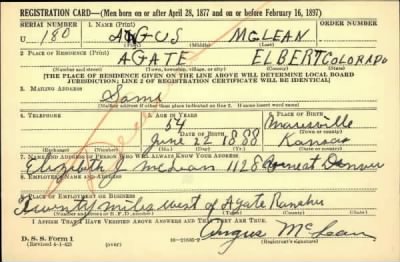 REGISTRATION CARD—(Men born on or after April 28, 1877 and on or before February 16, 1897)
SERIAL NUMBER 1. NAME (Print) ORDER NUMBER
U 180 ANGUS McLEAN
(First) (Middle) (Last)
2. PLACE OF RESIDENCE (Print)
AGATE ELBERT COLORADO
(Number and street) (Town, township, village, or city) (County) (State)
[THE PLACE OF RESIDENCE GIVEN ON THE LINE ABOVE WILL DETERMINE LOCAL BOARD
JURISDICTION; LINE 2 OF REGISTRATION CERTIFICATE WILL BE IDENTICAL]
3. MAILING ADDRESS
Same
[Mailing address if other than place indicated on line 2. If same insert word same]
4. TELEPHONE 5. AGE IN YEARS 6. PLACE OF BIRTH
54 Marysville
DATE OF BIRTH (Town or county)
June 22 1888 Kansas
(Exchange) (Number) (Mo.) (Day) (Yr.) (State or country)
7. NAME AND ADDRESS OF PERSON WHO WILL ALWAYS KNOW YOUR ADDRESS
Elizabeth J McLean 1128 Denver
8. EMPLOYER'S NAME AND ADDRESS
9. PLACE OF EMPLOYMENT OR BUSINESS
Twenty miles west of Agate Rancher
(Number and street or R. F. D. number) (Town) (County) (State)
I AFFIRM THAT I HAVE VERIFIED ABOVE ANSWERS AND THAT THEY ARE TRUE.
D. S. S. Form 1
(Revised 4-1-42) (over) Angus McLean
(Registrant's signature)